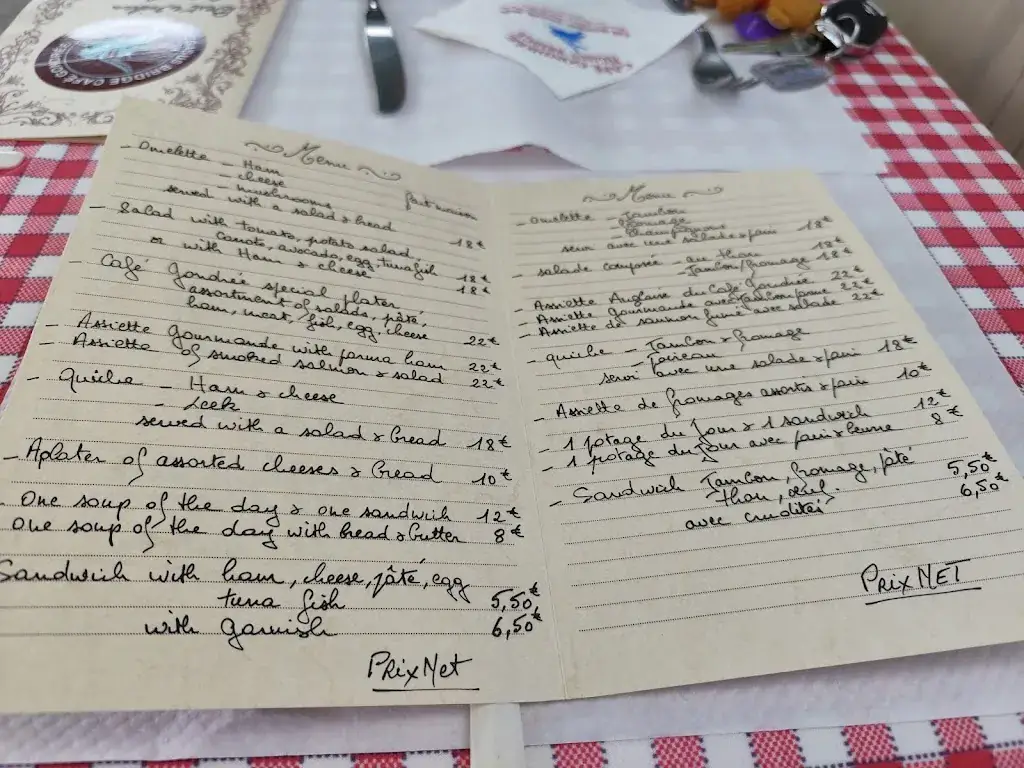 BRIDGE CAFÉ GONDRÉE
Menu
- Omelette - Ham
- cheese
- mushrooms
served with a salad & bread 18€
- Salad with tomato, potato salad,
carrots, avocado, egg, tuna fish 18€
or with Ham & cheese 18€
- Café Gondrée special plater
assortment of salads, pâté,
ham, meat, fish, egg, cheese 22€
- Assiette gourmande with parma ham 22€
- Assiette of smoked salmon & salad 22€
- Quiche - Ham & cheese
- Leek
served with a salad & bread 18€
- A plater of assorted cheeses & bread 10€
- One soup of the day & one sandwich 12€
One soup of the day with bread & butter 8€
Sandwich with ham, cheese, pâté, egg
tuna fish 5,50€
with garnish 6,50€
Prix Net
Menu
- Omelette - Jambon
- fromage
- Champignons
servi avec une salade & pain 18€
- salade composée - au thon 18€
- Jambon/fromage 18€
- Assiette Anglaise du Café Gondrée 22€
- Assiette gourmande avec Jambon parme 22€
- Assiette de saumon fumé avec salade 22€
- quiche - Jambon & fromage
- Poireau
servi avec une salade & pain 18€
- Assiette de fromages assortis & pain 10€
- 1 potage du Jour & 1 sandwich 12€
- 1 potage du Jour avec pain & beurre 8€
- Sandwich Jambon, fromage, pâté
thon, œuf. 5,50€
avec crudités 6,50€
PRIX NET